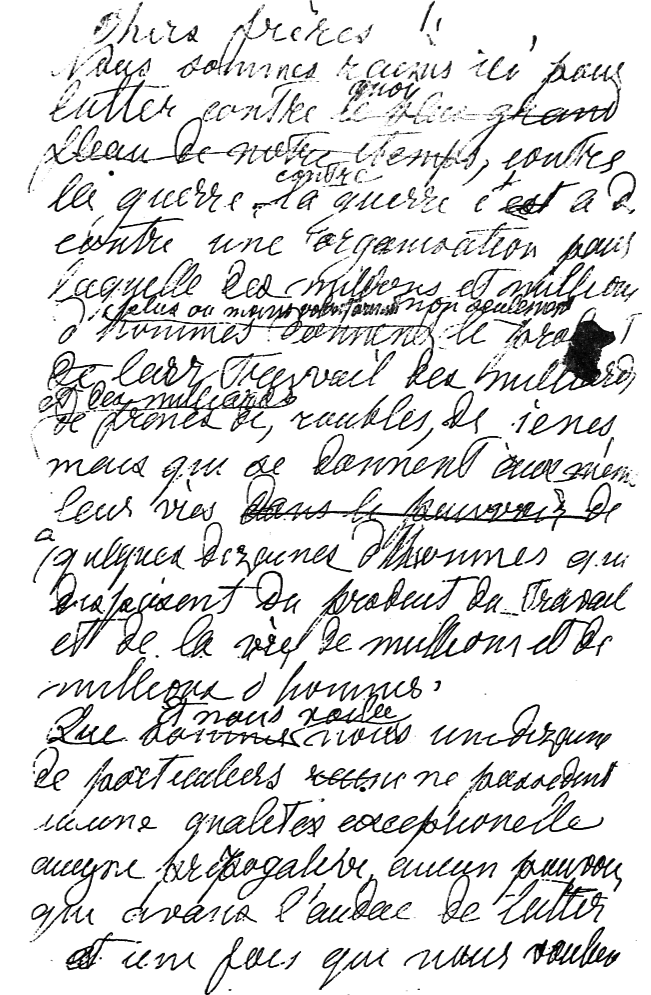 Chers frères !
Nous sommes réunis ici pour
quoi
lutter contre le plus grand
fléau de notre temps, contre
contre
la guerre. la guerre c'est à d.
contre une organisation pour
laquelle des millions et millions
plus ou moins volontairement non seulement
d'hommes donnent le produit
de leur travail des milliards
et des milliards
de francs de, roubles, de ienes,
mais qui se donnent eux mêm
leur vies dans le pouvoir de
à quelques dizaines d'hommes qui
disposent du produit du travail
et de la vie de millions et de
millions d'hommes.
Et nous voilà
Que sommes nous une dizaine
de particuliers ne possedent
aucune qualités exceptionelle
aucune prérogative, aucun pouvoir
qui avons l'audac de lutter
et une fois que nous voulons